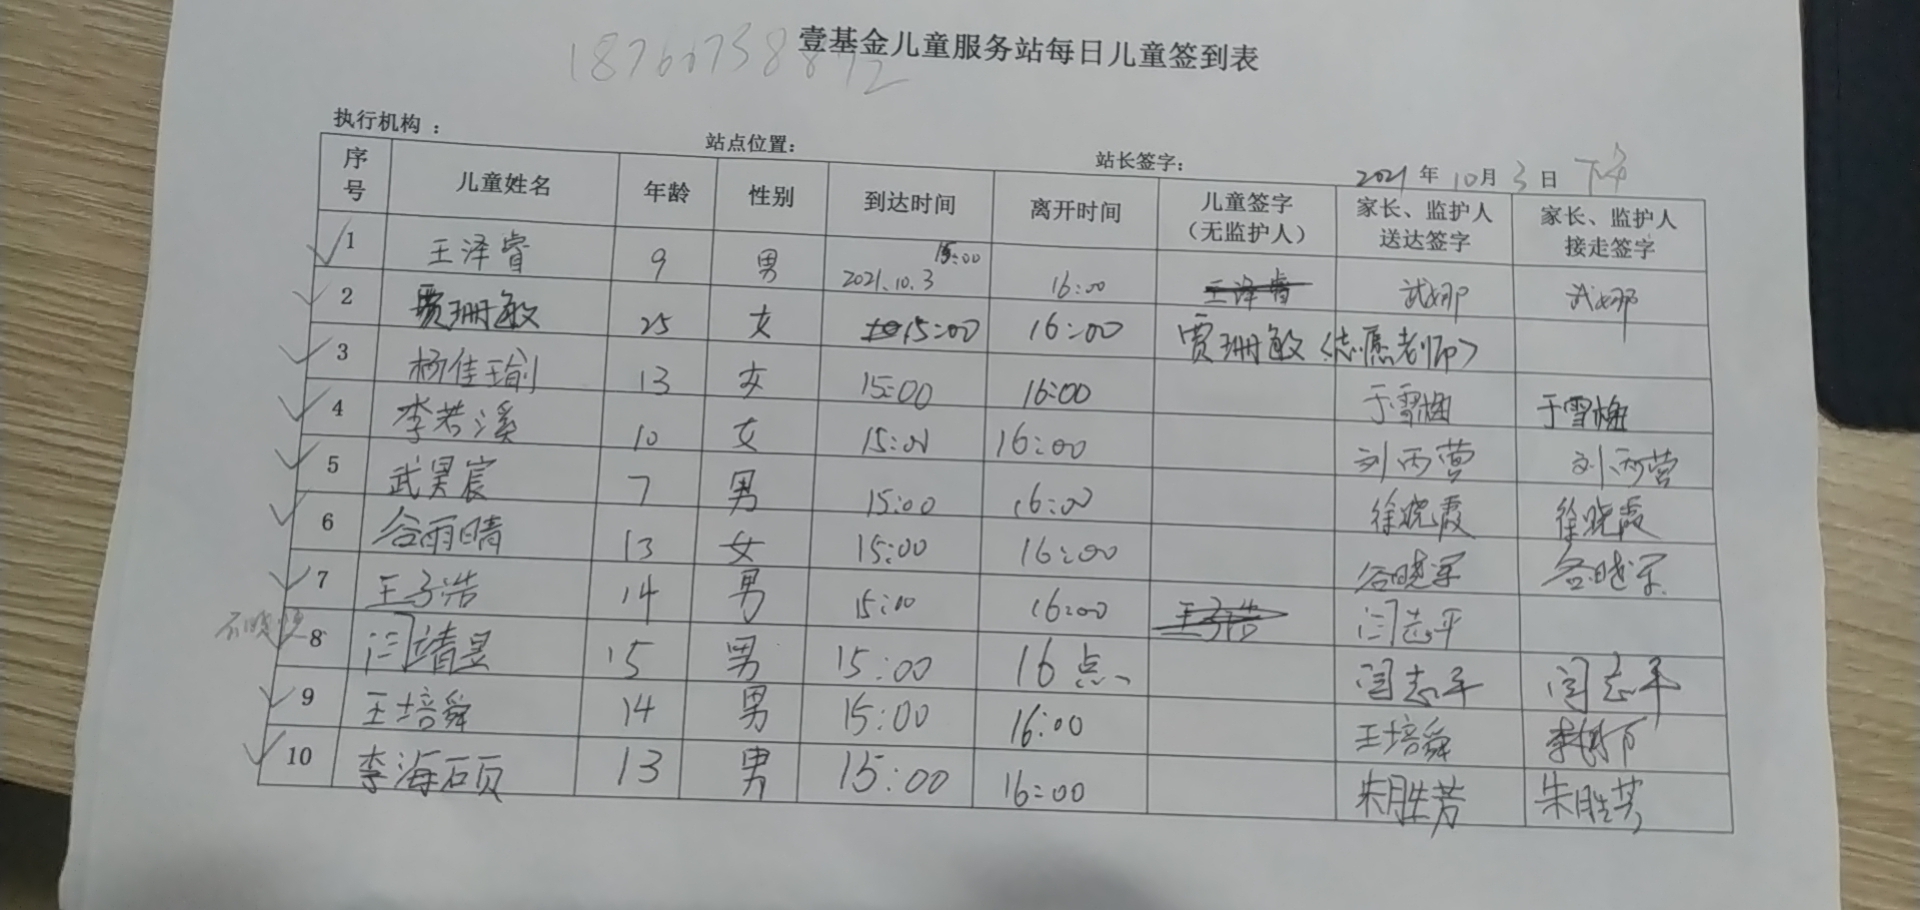 壹基金儿童服务站每日儿童签到表
执行机构： 站点位置： 站长签字： 2021年10月3日 下午
序号 儿童姓名 年龄 性别 到达时间 离开时间 儿童签字（无监护人） 家长、监护人送达签字 家长、监护人接走签字
1 王泽睿 9 男 2021.10.3 15:00 16:00 王泽睿 武娜 武娜
2 贾珊敏 25 女 15:00 16:00 贾珊敏（志愿老师）
3 杨佳瑜 13 女 15:00 16:00 于雪梅 于雪梅
4 李若溪 10 女 15:00 16:00 刘丙营 刘丙营
5 武昊宸 7 男 15:00 16:00 徐晓霞 徐晓霞
6 谷雨晴 13 女 15:00 16:00 谷晓军 谷晓军
7 王子浩 14 男 15:00 16:00 王子浩 闫志平
8 闫靖昱 15 男 15:00 16点 闫志平 闫志平
9 王培舜 14 男 15:00 16:00 王培舜
10 李海硕 13 男 15:00 16:00 朱胜芳 朱胜芳